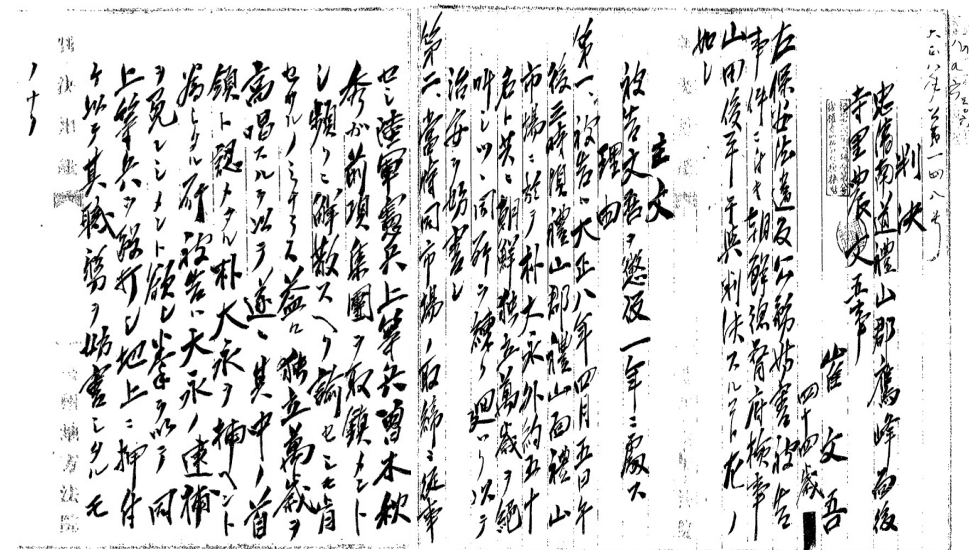 大正八年公第一四八号
判決
忠清南道禮山郡鷹峰面後
寺里 農
崔文吾
四十四歳
右保安法違反公務妨害被告
事件ニ付キ朝鮮総督府検事
山田俊平干與判決スルコト左ノ
如シ
主文
被告文吾ヲ懲役一年ニ處ス
理由
第一、被告ハ大正八年四月五日午
後三時頃禮山郡禮山面禮山
市場ニ於テ朴大永外約五十
名ト共ニ朝鮮独立萬歳ヲ絶
叫シツヽ同所ヲ練リ廻ハリ以テ
治安ヲ妨害シ
第二、當時同市場ノ取締ニ従事
セシ陸軍憲兵上等兵曽木秋
参カ前項集團ヲ取鎮メント
シ頻リニ解散スヘク諭セシモ肯
セサルノミナラス益々独立萬歳ヲ
高唱スルヲ以テ遂ニ其中ノ首
領ト認メタル朴大永ヲ捕ヘント
為シタル所被告ハ大永ノ逮捕
ヲ免レシメント欲シ拳ヲ以テ同
上等兵ヲ殴打シ地上ニ押付
ケ以テ其職務ヲ妨害シタルモ
ノナリ